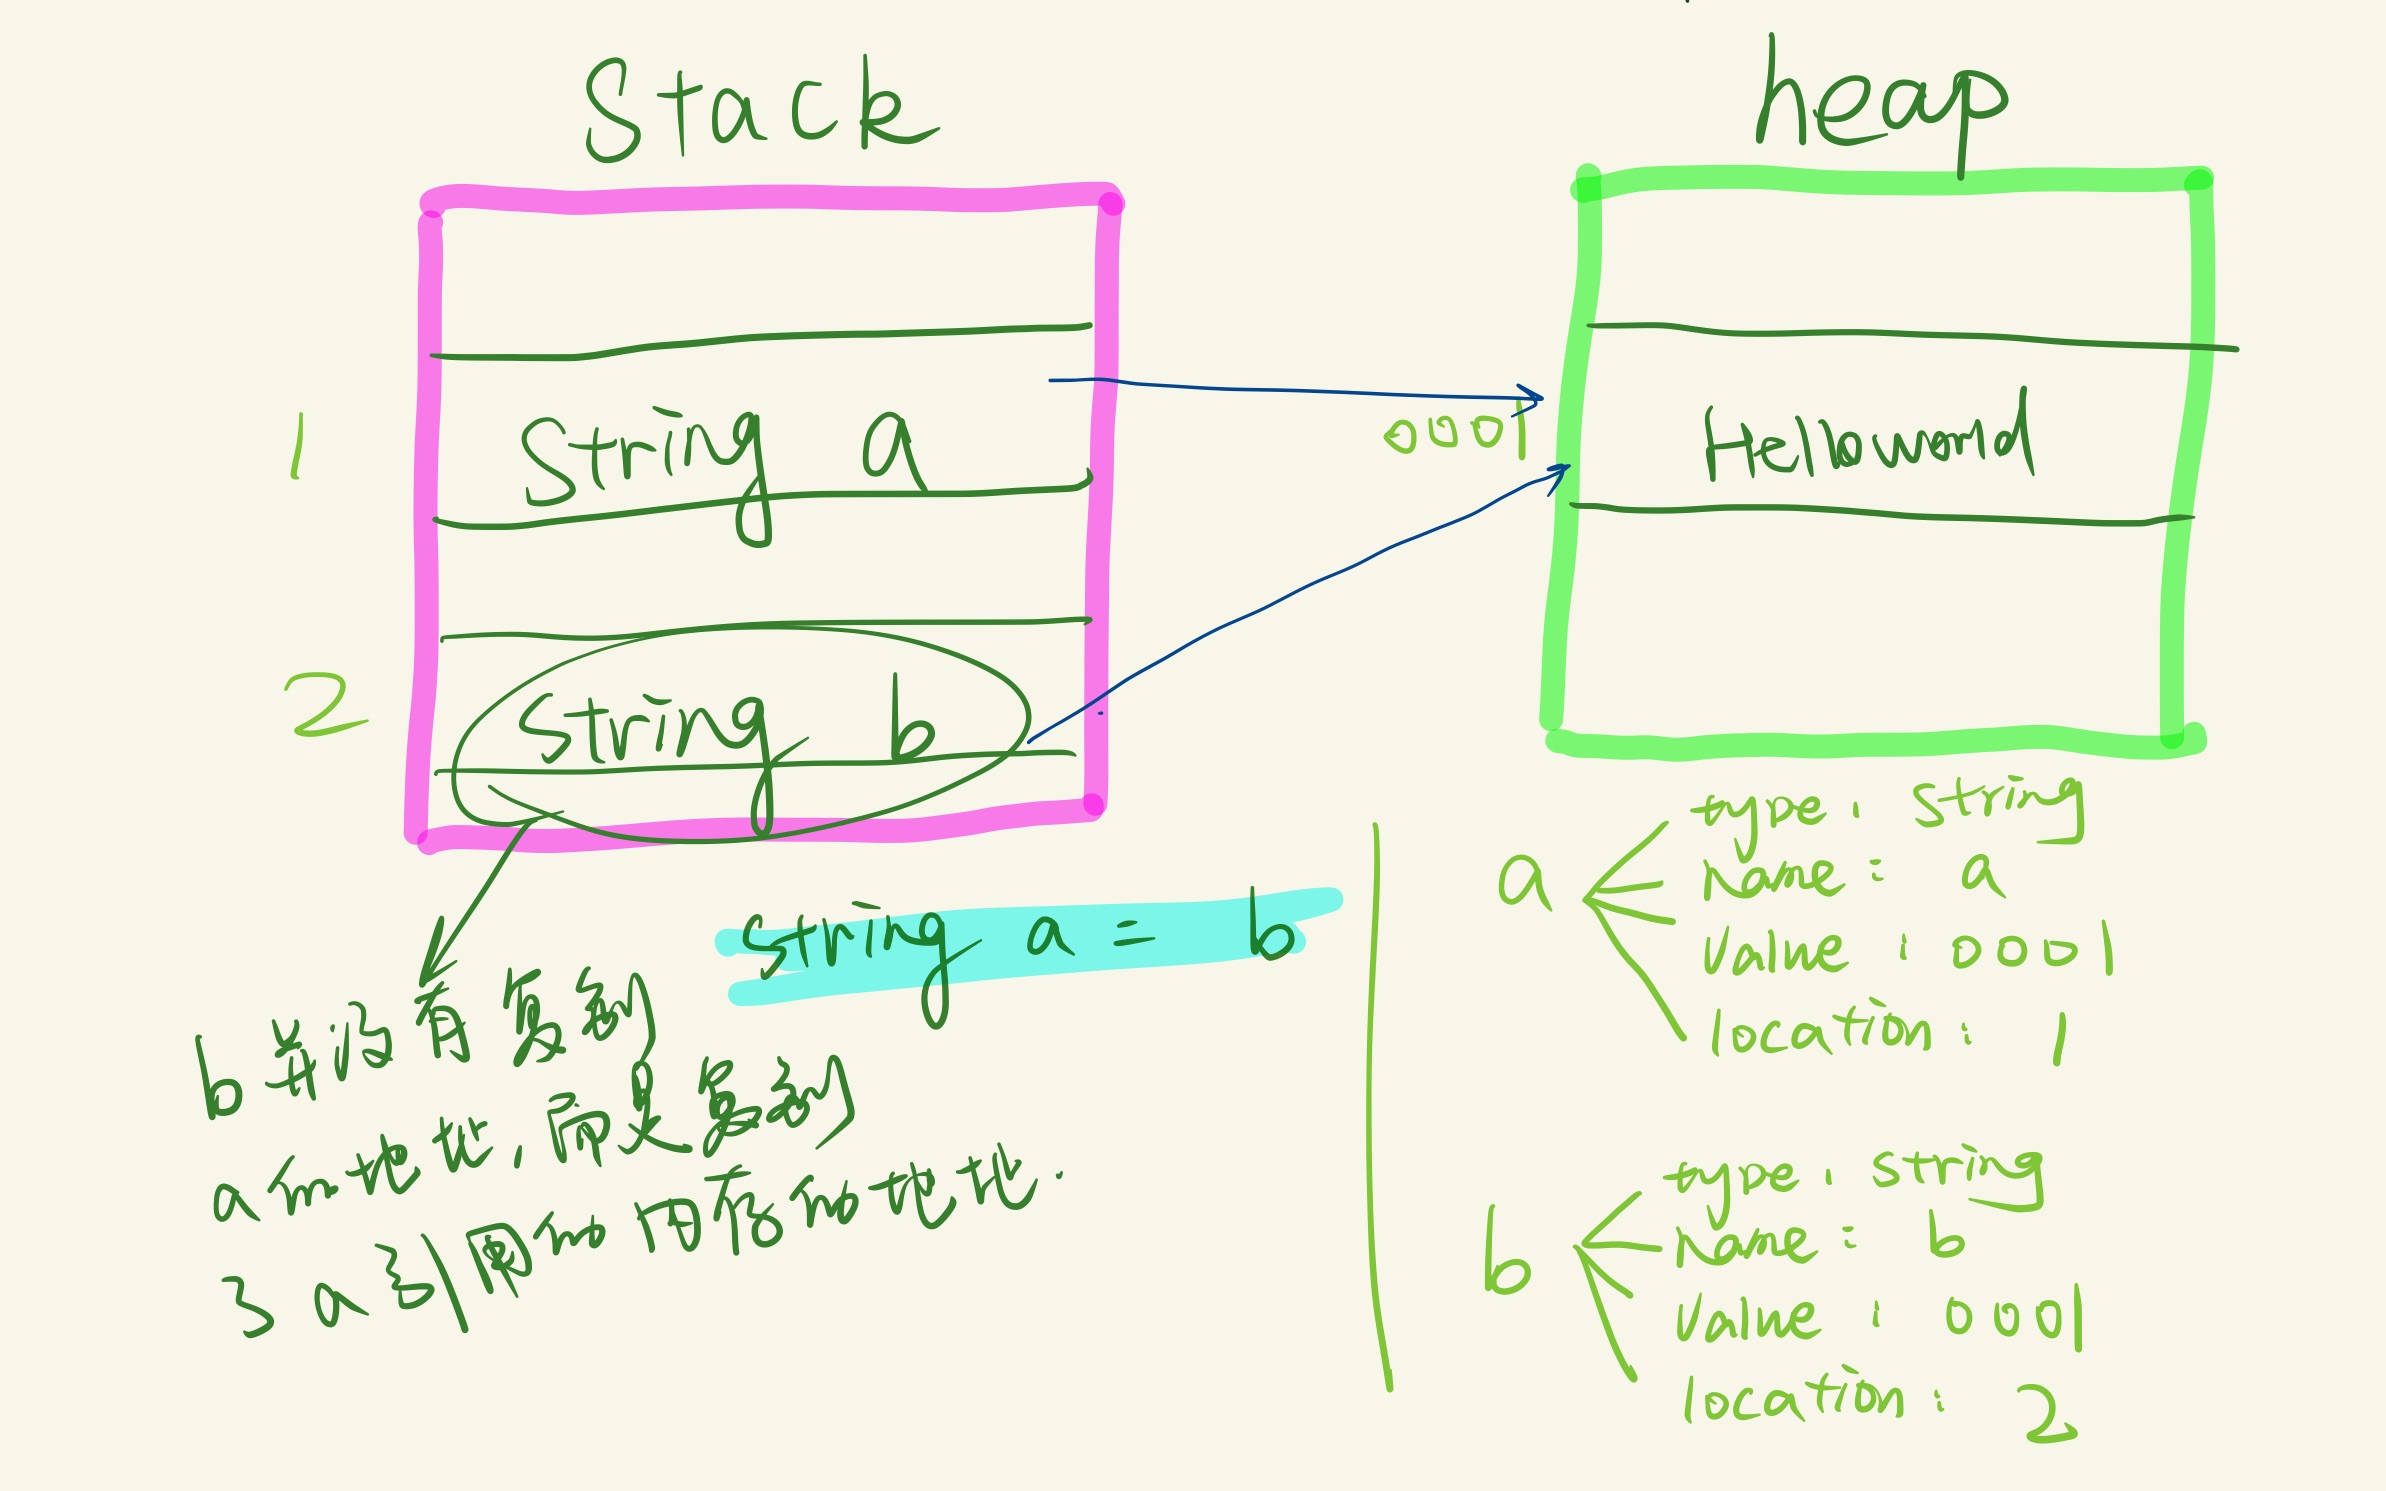 Stack
heap
1
String a
0001
Helloword
2
String b
String a = b
b并没有复制
a的地址,而是复制
了a引用的内存的地址.
a
type: String
Name: a
Value: 0001
location: 1
b
type: String
Name: b
Value: 0001
location: 2